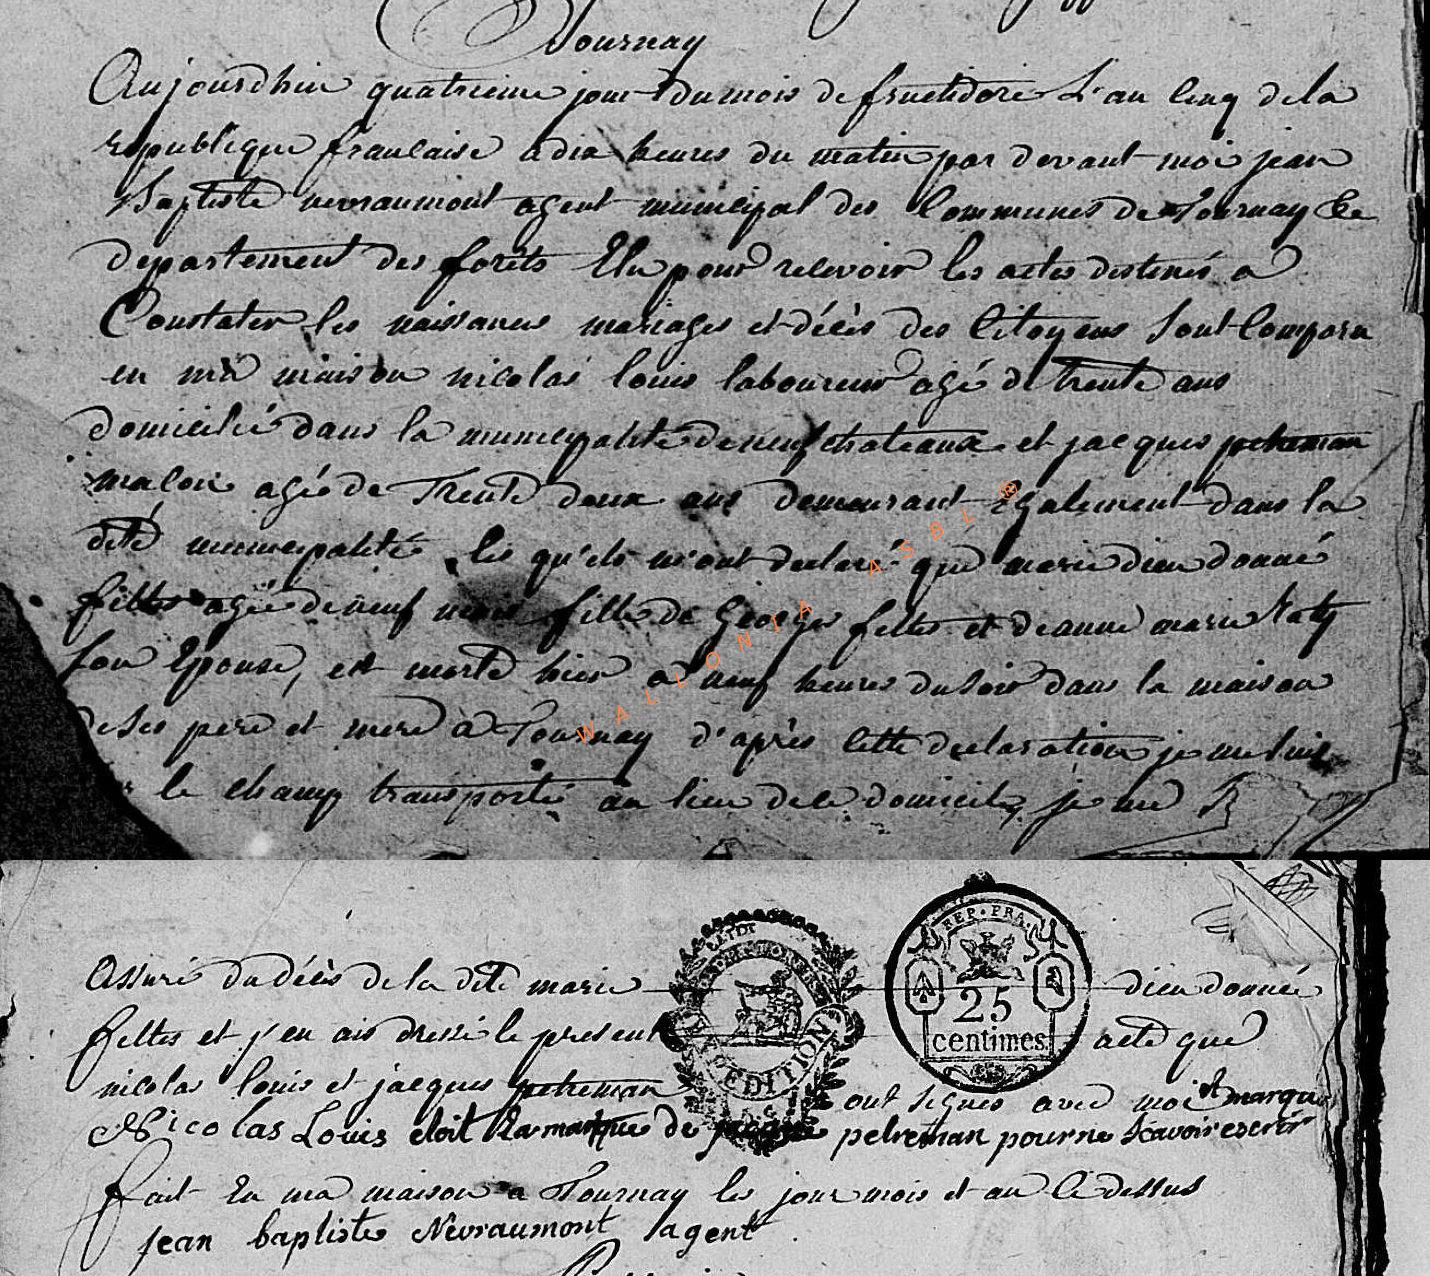 Tournay
Aujourdhui quatrieme jour du mois de fructidore L'an cinq de la
republique francaise a dix heures du matin par devant moi jean
Baptiste nevraumont agent municipal des Communes de Tournay &c
departement des forêts Elu pour recevoir les actes destinés a
Constater les naissances mariages et décès des Citoyens sont Comparu
en ma maison nicolas louis laboureur agé de trente ans
domicilié dans la municipalité de neufchateaux et jacques petreman
macon agé de Trente deux ans demeurant Egalement dans la
dite municipalité, les qu'els m'ont declaré que marie dieu donné
feltes agée de neuf mois fille de George feltes et de anne marie
son Epouse, est morte hier a neuf heures du soir dans la maison
de ses pere et mere à Tournay d'après cette declaration je me suis
le champ transporté au lieu de ce domicile, je me
WALLONIA ASBL ®
Assuré du décès de la dite marie dieu donnée
feltes et j'en ais dressé le present acte que
nicolas louis et jacques petreman ont signes avec moi et marque
Nicolas Louis etoit la marque de petreman pour ne scavoir escrir
fait En ma maison a Tournay les jour mois et an Ci dessus
jean baptiste Nevraumont agent
REP. FRA.
25
centimes
EXPEDITION